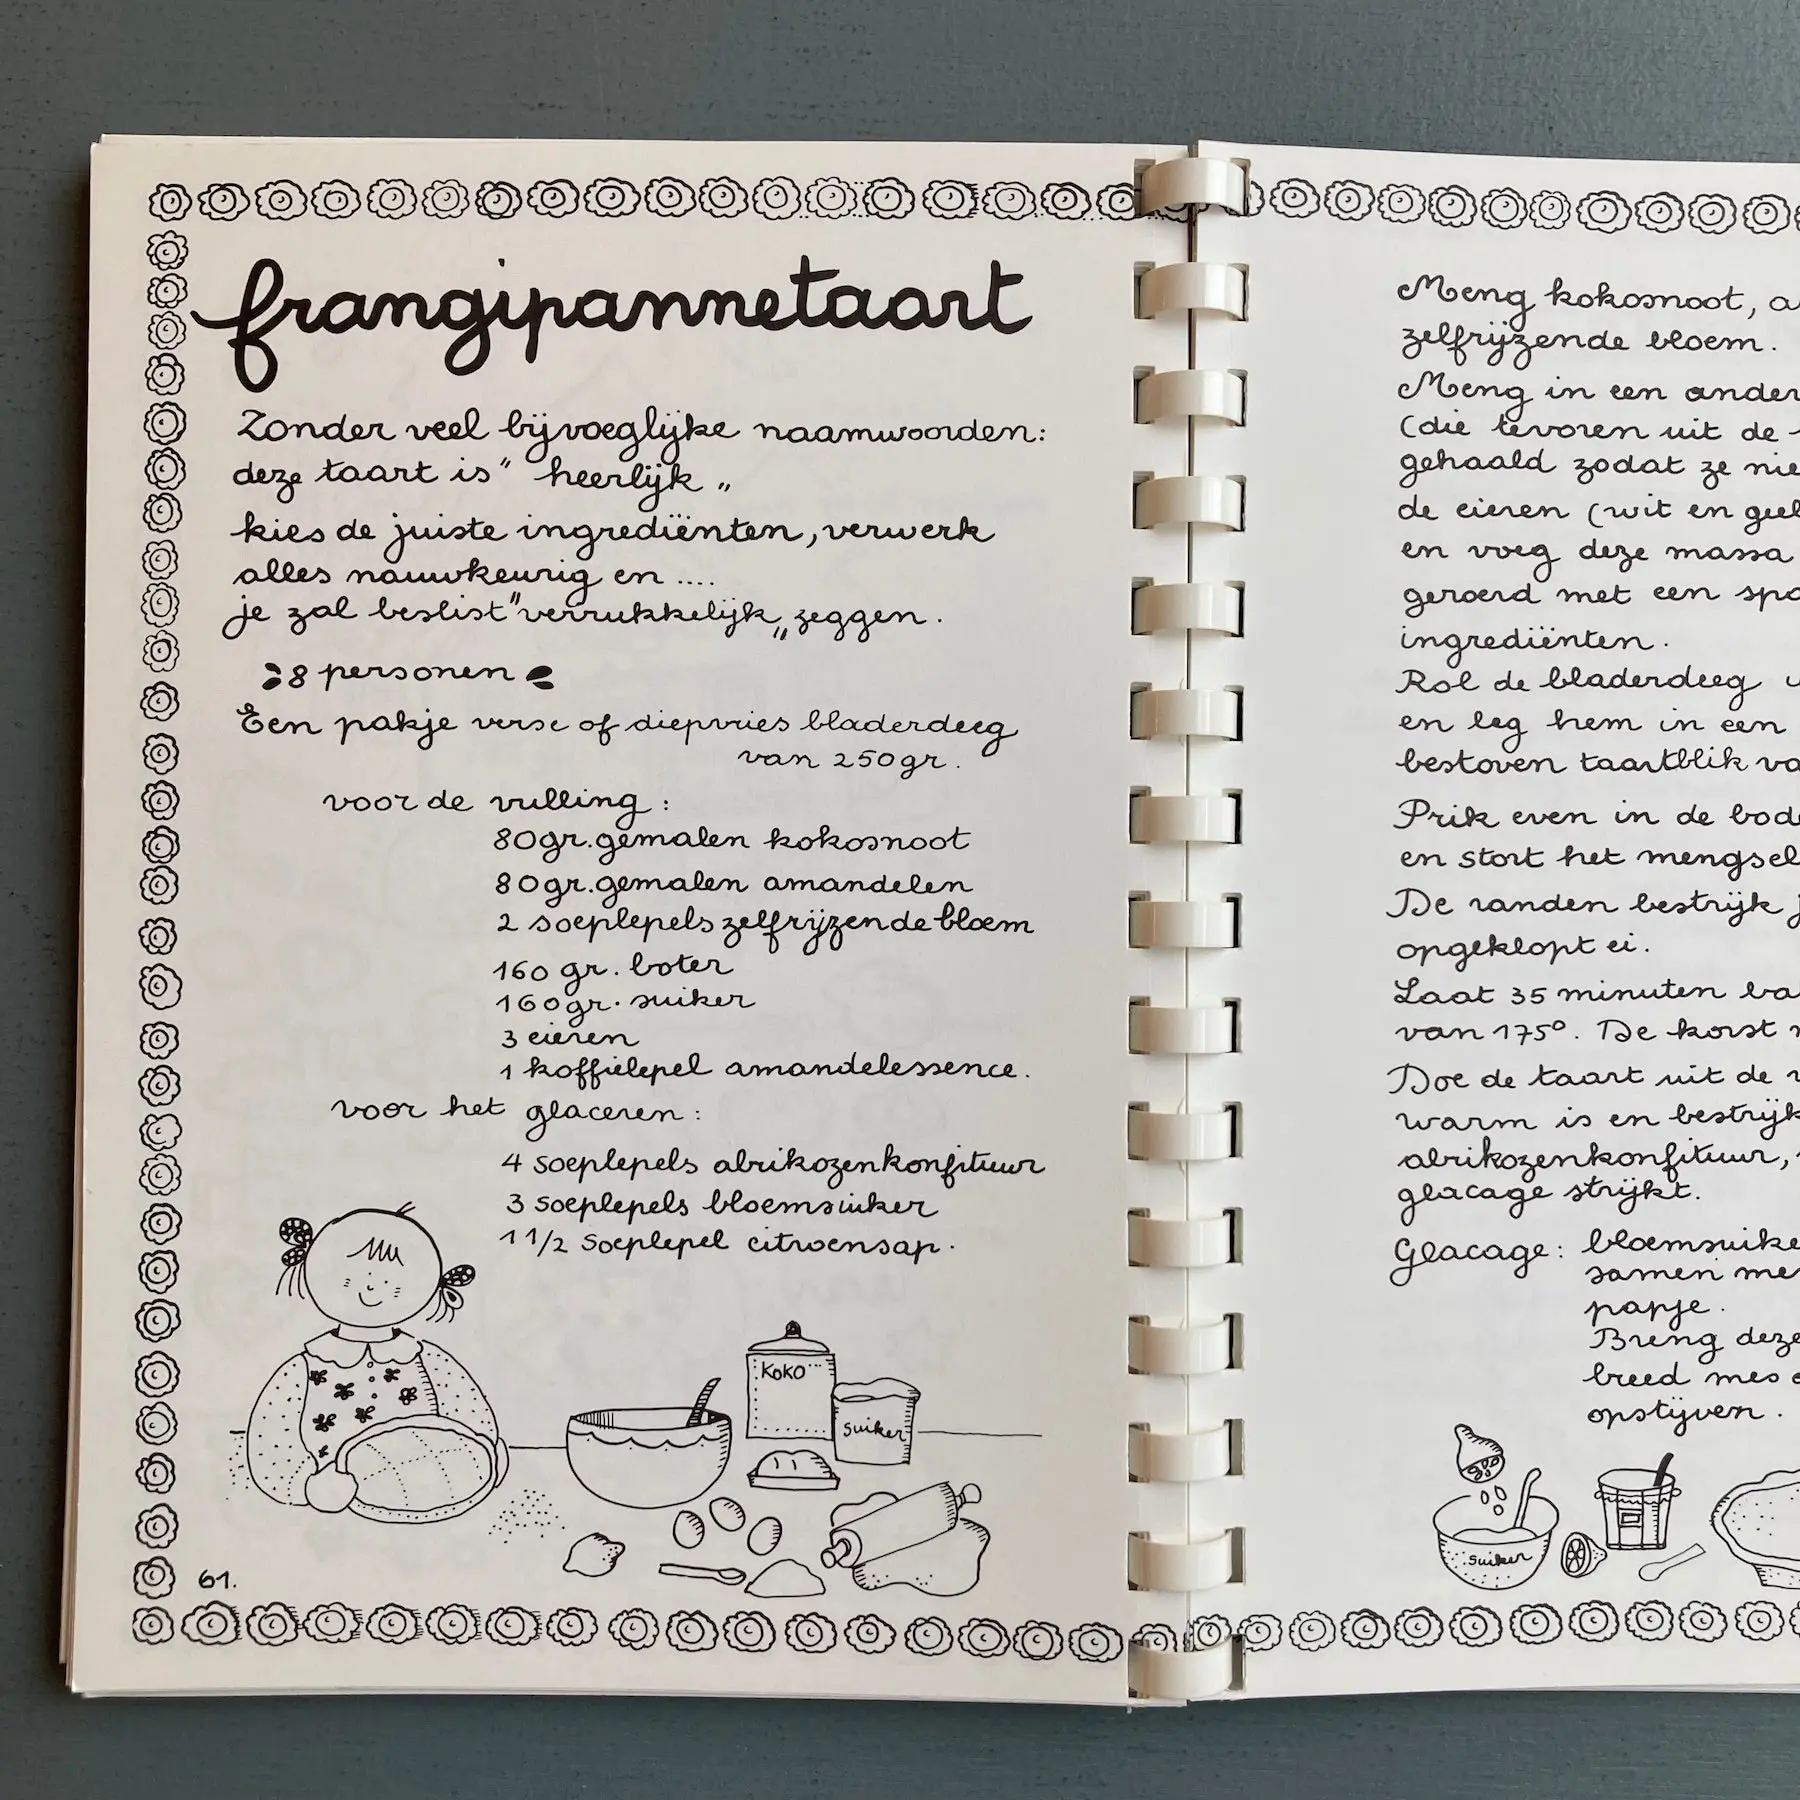 frangipannetaart
Zonder veel bijvoeglijke naamwoorden:
deze taart is" heerlijk „
kies de juiste ingrediënten, verwerk
alles nauwkeurig en ....
je zal beslist "verrukkelijk„ zeggen.
8 personen
Een pakje verse of diepvries bladerdeeg
van 250gr.
voor de vulling:
80gr. gemalen kokosnoot
80gr. gemalen amandelen
2 soeplepels zelfrijzende bloem
160 gr. boter
160gr. suiker
3 eieren
1 koffielepel amandelessence.
voor het glaceren:
4 soeplepels abrikozenkonfituur
3 soeplepels bloemsuiker
1 1/2 soeplepel citroensap.
KOKO
suiker
61.
Meng kokosnoot, a
zelfrijzende bloem.
Meng in een ander
(die tevoren uit de
gehaald zodat ze nie
de eieren (wit en geel
en voeg deze massa
geroerd met een spa
ingrediënten.
Rol de bladerdeeg
en leg hem in een
bestoven taartblik va
Prik even in de bode
en stort het mengsel
De randen bestrijk j
opgeklopt ei.
Laat 35 minuten ba
van 175°. De korst
Doe de taart uit de
warm is en bestrijk
abrikozenkonfituur,
glacage strijkt.
Glacage: bloemsuike
samen me
papje.
Breng deze
breed mes
opstijven.
suiker